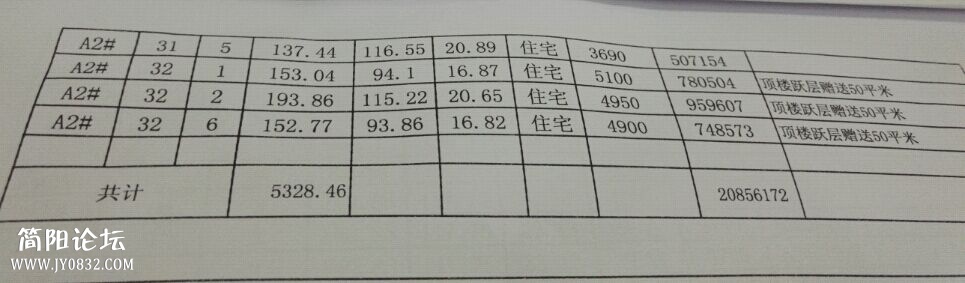 A2# 31 5 137.44 116.55 20.89 住宅 3690 507154
A2# 32 1 153.04 94.1 16.87 住宅 5100 780504 顶楼跃层赠送50平米
A2# 32 2 193.86 115.22 20.65 住宅 4950 959607 顶楼跃层赠送50平米
A2# 32 6 152.77 93.86 16.82 住宅 4900 748573 顶楼跃层赠送50平米
共计 5328.46 20856172
简阳论坛
WWW.JY0832.COM